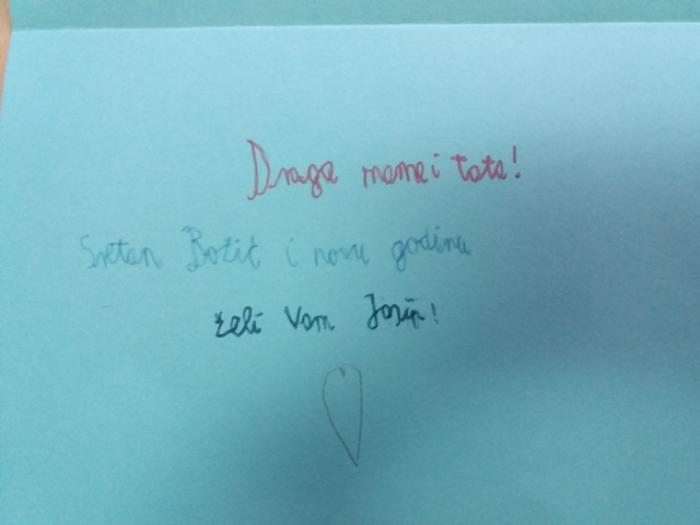 Draga mama i tata!
Sretan Božić i novu godinu
želi Vam Josip!